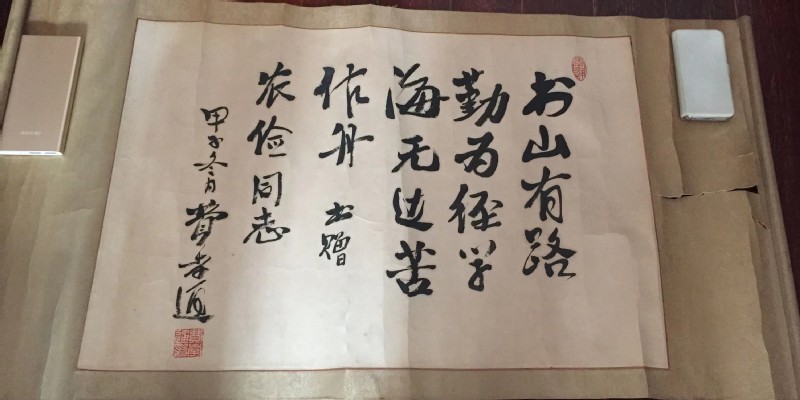 书山有路
勤为径学
海无边苦
作舟 书赠
农俭同志
甲子冬月 费孝通